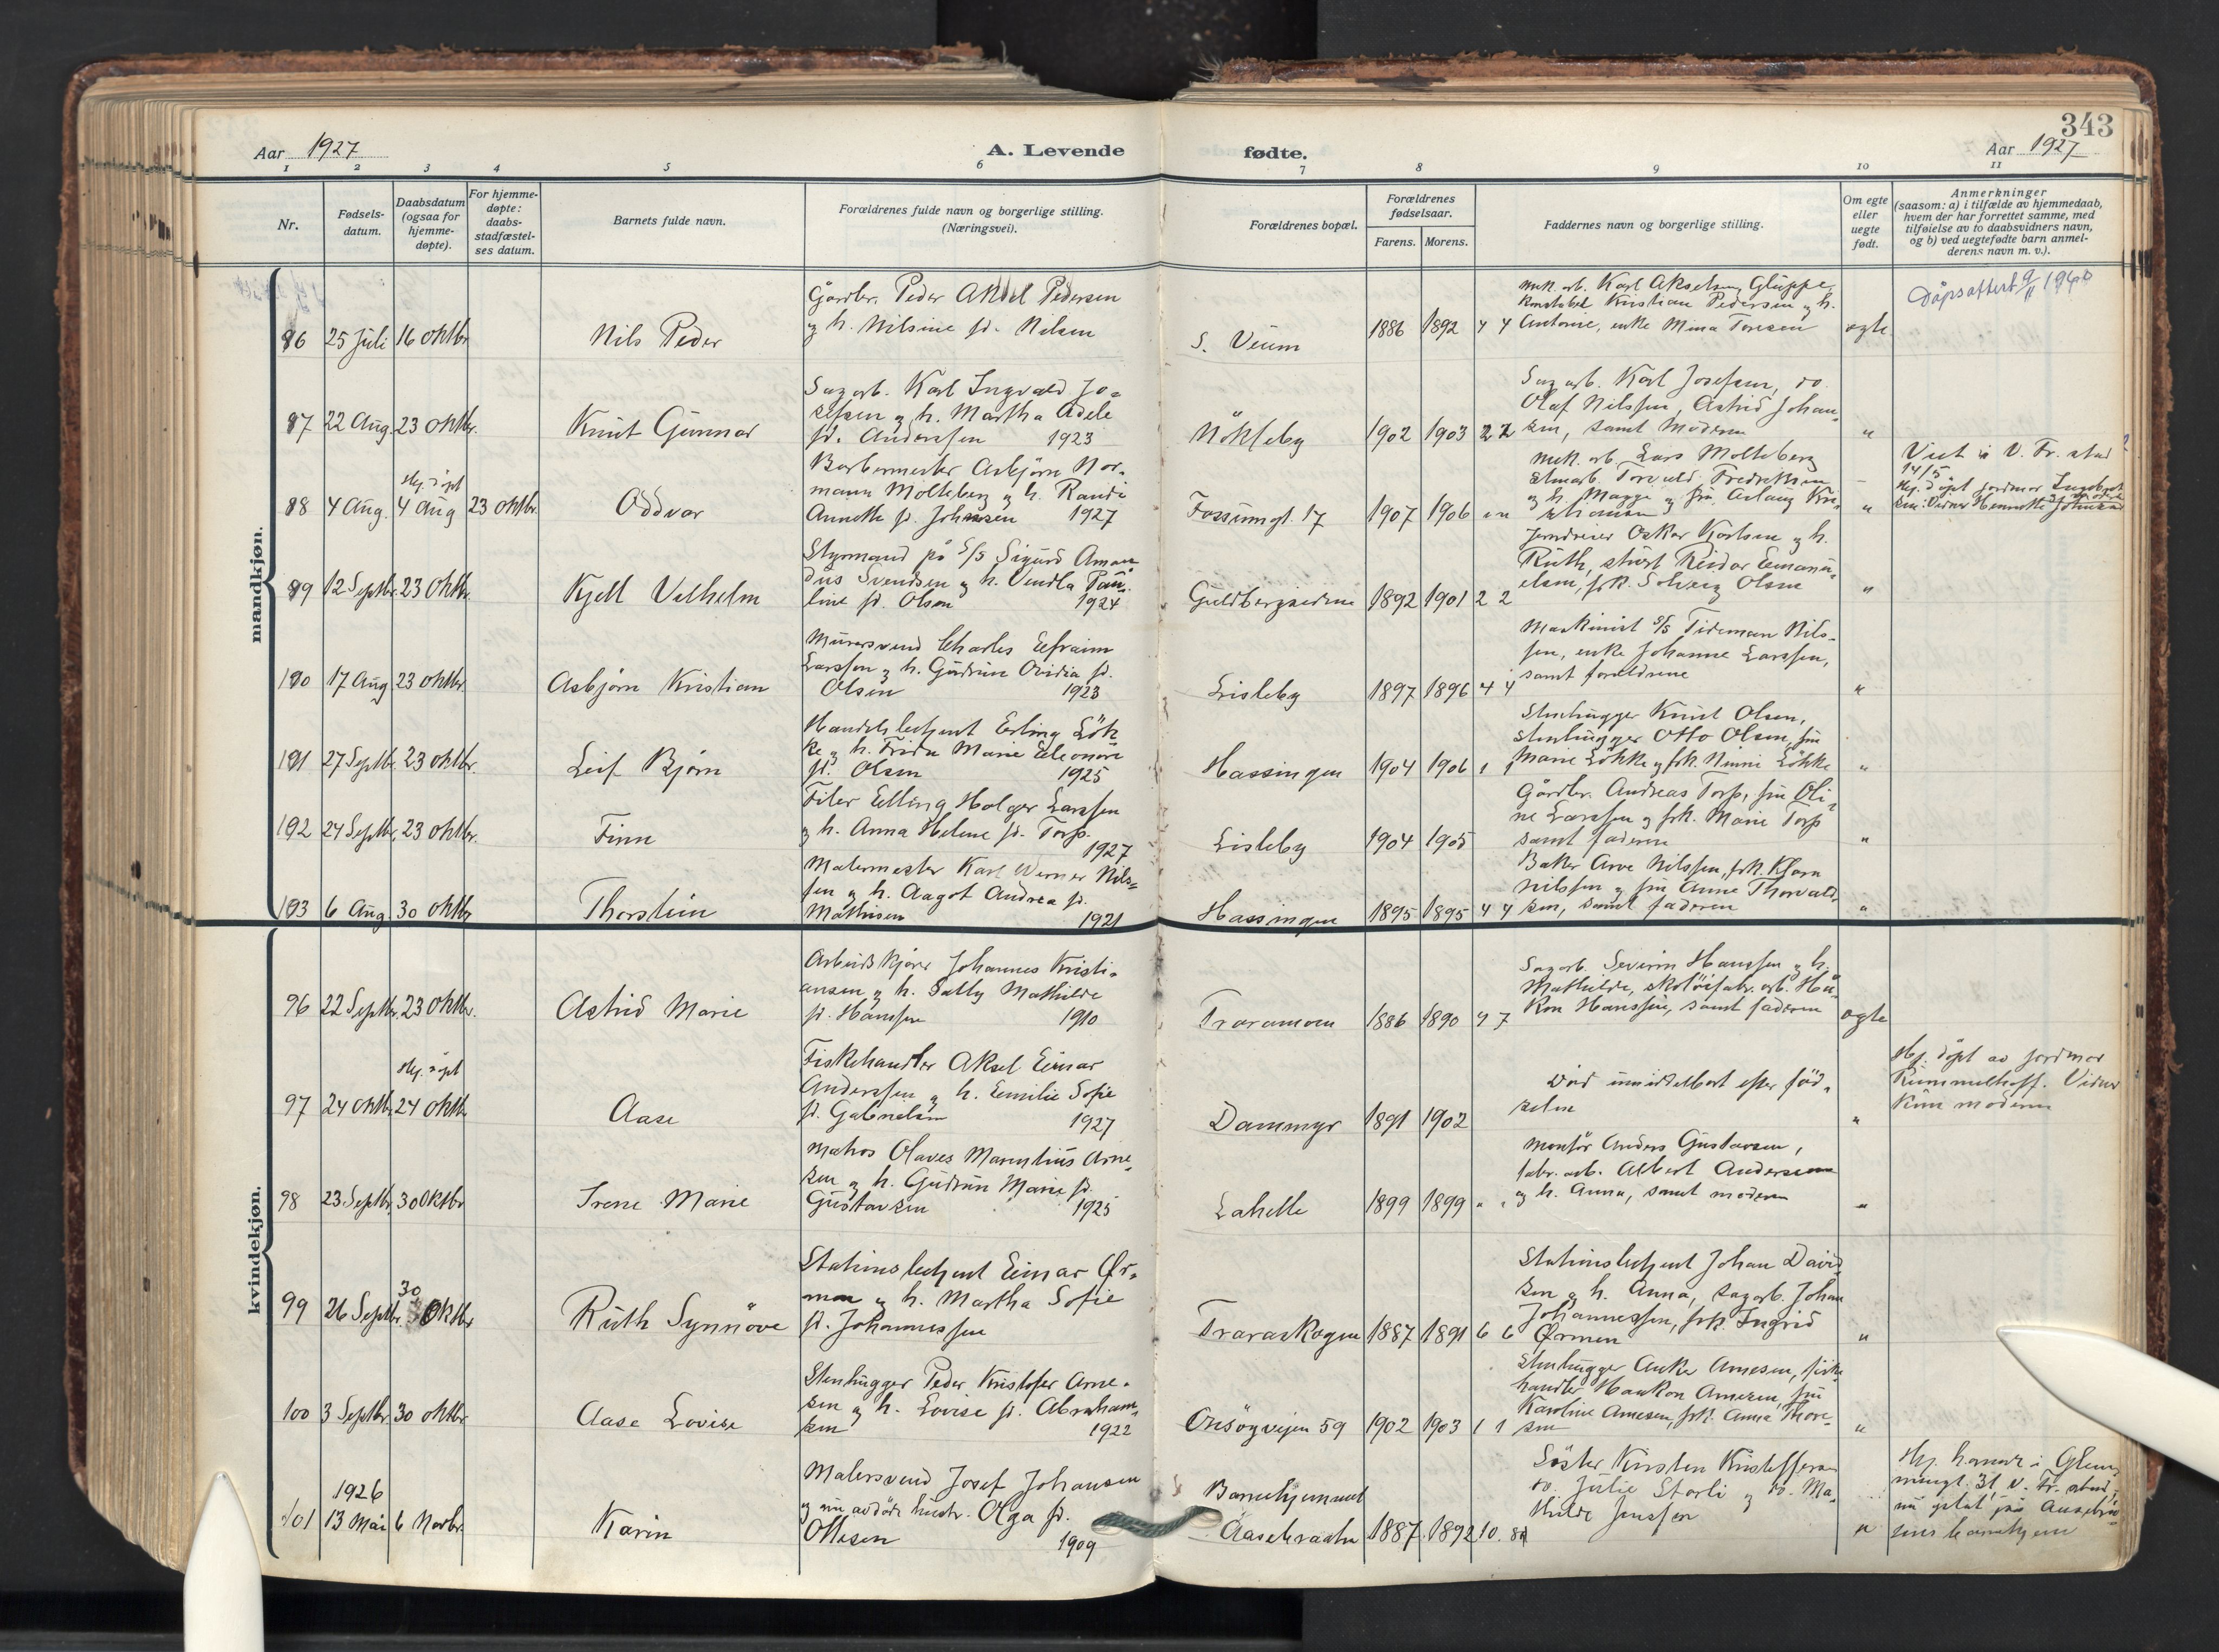 343
Aar 1927
A. Levende
fødte.
Aar 1927
1 2 3 4 5 6 7 8 9 10 11
Nr.
Fødsels-
datum.
Daabsdatum
(ogsaa for
hjemme-
døpte).
For hjemme-
døpte:
daabs-
stadfæstel-
ses datum.
Barnets fulde navn.
Forældrenes fulde navn og borgerlige stilling.
(Næringsvei).
Forældrenes bopæl.
Forældrenes
fødselsaar.
Farens. Morens.
Faddernes navn og borgerlige stilling.
Om egte
eller
uegte
født.
Anmerkninger
(saasom: a) i tilfælde av hjemmedaab,
hvem der har forrettet samme, med
tilføielse av to daabsvidners navn,
og b) ved uegtefødte barn anmel-
derens navn m. v.).
mandkjøn.
86 25 Juli 16 oktbr
Nils Peder
Gårdbr. Peder Aksel Pedersen
og h. Nilsine f. Nilsen
S. Veum
1886 1892 4 4
mek. arb. Karl Akselsen, Gluppe,
konstabel Kristian Pedersen og h.
Antonie, enke Mina Toresen
egte
Dåpsattest 9/11 1960
87 22 Aug. 23 oktbr.
Knut Gunnar
Sagarb. Karl Ingvald Jo-
sefsen og h. Martha Adele
f. Anderssen 1923
Nökleby
1902 1903 2 2
Sagarb. Karl Josefsen, do.
Olaf Nilssen, Astrid Johan-
sen, samt moderen
"
88 4 Aug. Hj. döpt 4 Aug 23 oktbr.
Oddvar
Barbermester Asbjörn Nor-
mann Molteberg og h. Randi
Annethe f. Johnsen 1927
Fossumgt. 17
1907 1906
mek. arb. Lars Molteberg
Torvald Fredriksen
og h. Magga og frk. Aslaug Kri-
"
Viet i V. Fr. stad
14/5
Hj. döpt jordmor
89 12 Septbr. 23 Oktbr.
Kjell Vilhelm
Styrmand på S/S Sigurd Aman-
dus Svendsen og h. Vendla Pau-
line f. Olsen 1924
Guldbergsiden
1892 1901 2 2
Jerndreier Oskar Karlsen og h.
Ruth, stuert Reidar Emanu-
elsen, frk. Solveig Olsen
"
190 17 Aug 23 oktbr.
Asbjörn Kristian
Murersvend Charles Efraim
Larssen og h. Gudrun Ovidia f.
Olsen 1923
Lisleby
1897 1896 4 4
Maskinist S/S Tideman Nils-
sen, enke Johanne Larssen,
samt foreldrene
"
191 27 Septbr. 23 oktbr.
Leif Bjørn
Handelsbetjent Erling Lök-
ke og h. Frida Marie Eleonore
f. Olsen 1925
Hassingen
1904 1906 1 1
Stenhugger Knut Olsen,
stenhugger Otto Olsen, fru
Marie Lökke og frk. Ninni Lökke
"
192 24 Septbr. 23 oktbr.
Finn
Filer Elling Holger Larssen
og h. Anna Helene f. Torp.
1927
Lisleby
1904 1905
Gårdbr. Andreas Torp, fru Oli-
ne Larssen og frk. Marie Torp
samt faderen
"
193 6 Aug 30 oktbr
Thorstein
Malermester Karl Werner Nils-
sen og h. Aagot Andrea f.
Mathisen 1921
Hassingen
1895 1895 4 4
Baker Arve Nilssen, frk. Klara
Nilssen og fru Anne Thorvald-
sen, samt faderen
"
kvindekjøn.
96 22 Septbr. 23 Oktbr.
Astrid Marie
Arbeidskjører Johannes Kristi-
ansen og h. Sally Mathilde
f. Hanssen 1910
Traramoen
1886 1890 7 7
Sagarb. Severin Hanssen og h.
Mathilde, skotöifabr. arb. Hå-
kon Hanssen, samt faderen
egte
97 24 oktbr Hj. döpt 24 oktbr
Aase
Fiskehandler Aksel Einar
Anderssen og h. Emilie Sofie
f. Gabrielsen 1927
Dammyr
1891 1902
Död umiddelbart efter föd-
selen
"
Hj. döpt av jordmor
Rummelhoff. Vidner
kun moderen
98 23 Septbr. 30 Oktbr
Irene Marie
Matros Olaves Marentius Arne-
sen og h. Gudrun Marie f.
Gustavsen 1925
Lahelle
1899 1899 " "
Montør Anders Gustavsen,
fabr. arb. Albert Andersen
og h. Anna, samt moderen
"
99 26 Septbr. 30 Oktbr
Ruth Synnöve
Stationsbetjent Einar Ør-
men og h. Martha Sofie
f. Johannessen
Traraskogen
1887 1891 6 6
Stationsbetjent Johan David-
sen og h. Anna, sagarb. Johan
Johannessen, frk. Ingrid
Ørmen
"
100 3 Septbr. 30 oktbr
Aase Lovise
Stenhugger Peder Kristofer Arne-
sen og h. Lovise f. Abraham-
sen 1922
Onsöyveien 59
1902 1903 1 1
Stenhugger Anker Arnesen, fiske-
handler Haakon Arnesen, fru
Karoline Arnesen, frk. Anna Thore-
sen
"
101 1926 13 Mai 6 Novbr.
Karin
Malersvend Josef Johansen
og nu avdöde hustr. Olga f.
Ottesen 1909
Barnehjemmet
Aasebraaten
1887 1892 10.
Söster Kirsten Kristoffersen
do. Julie Storli og do. Ma-
thilde Jenssen
"